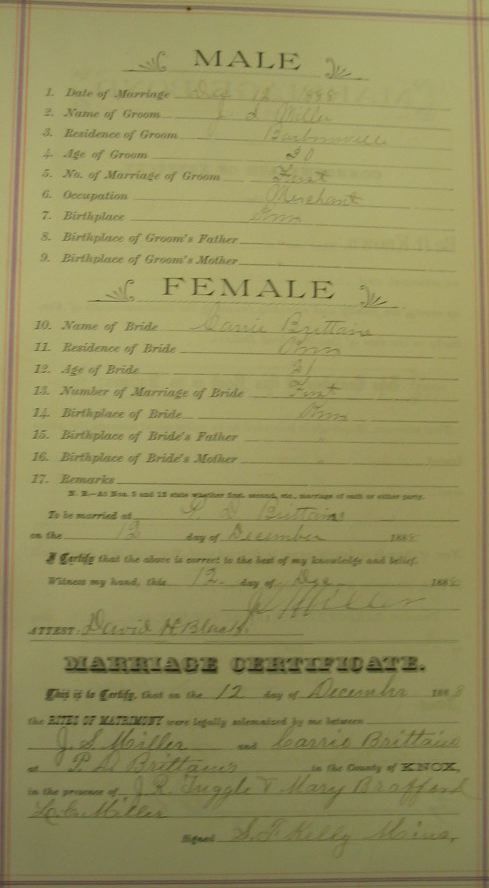 MALE
1. Date of Marriage Dec 12 1888
2. Name of Groom J S Miller
3. Residence of Groom Barbourville
4. Age of Groom 30
5. No. of Marriage of Groom First
6. Occupation Merchant
7. Birthplace
8. Birthplace of Groom's Father "
9. Birthplace of Groom's Mother "
FEMALE
10. Name of Bride Carrie Brittains
11. Residence of Bride
12. Age of Bride 21
13. Number of Marriage of Bride First
14. Birthplace of Bride
15. Birthplace of Bride's Father "
16. Birthplace of Bride's Mother "
17. Remarks
N. B.—At Nos. 5 and 13 state whether first, second, etc., marriage of each or either party.
To be married at Brittains
on the 12 day of December 1888
I Certify that the above is correct to the best of my knowledge and belief.
Witness my hand, this 12 day of Dec 1888
J S Miller
ATTEST: David H Black
MARRIAGE CERTIFICATE.
This is to Certify, that on the 12 day of December 1888
the RITES OF MATRIMONY were legally solemnized by me between
J. S. Miller and Carrie Brittains
at Brittains in the County of KNOX,
in the presence of J. R. Tuggle & Mary Brafford
Miller
Signed Kelly Mins,